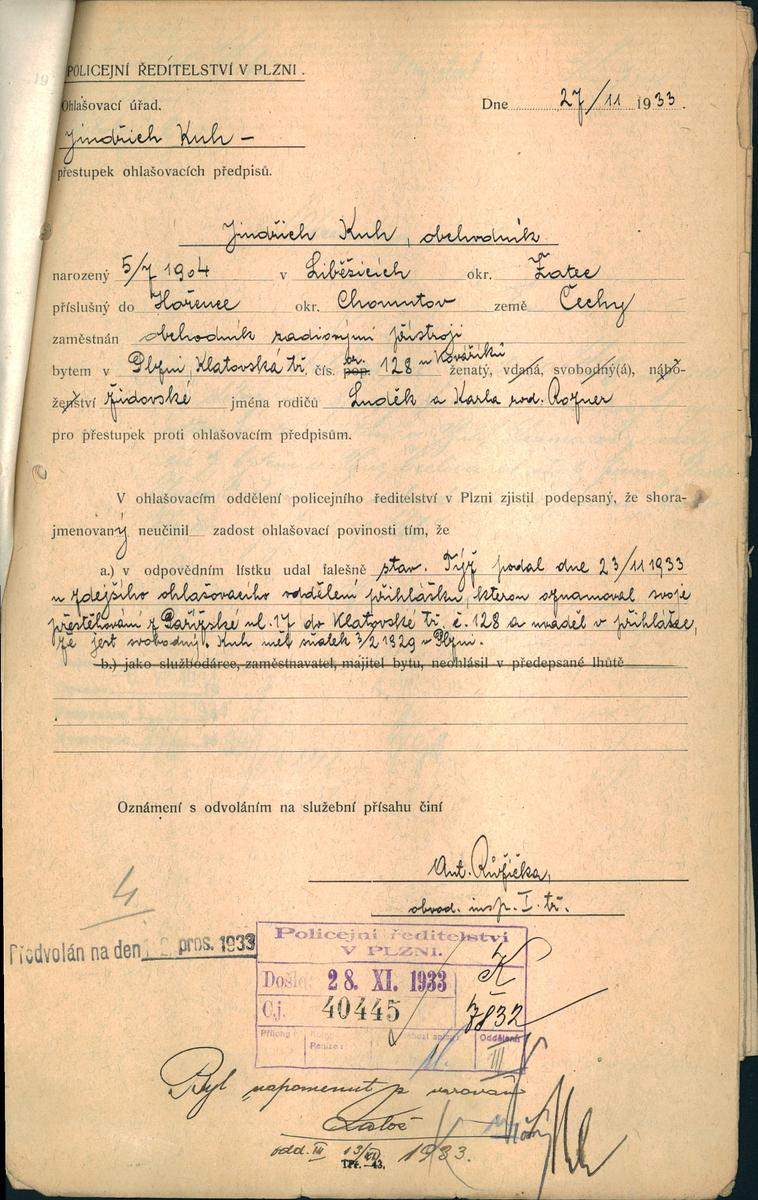 POLICEJNÍ ŘEDITELSTVÍ V PLZNI.
Ohlašovací úřad.
Dne 27/11 1933.
Jindřich Kuh –
přestupek ohlašovacích předpisů.
Jindřich Kuh, obchodník
narozený 5/7 1904 v Liběšicích okr. Žatec
příslušný do Hořence okr. Chomutov země Čechy
zaměstnán obchodník radiovými přístroji
bytem v Plzni, Klatovská tř. čís. pop. or. 128 u Kováříků ženatý, vdaná, svobodný(á), nábo-
ženství židovské jména rodičů Luděk a Karla roz. Rozner
pro přestupek proti ohlašovacím předpisům.
V ohlašovacím oddělení policejního ředitelství v Plzni zjistil podepsaný, že shora-
jmenovaný neučinil zadost ohlašovací povinosti tím, že
a.) v odpovědním lístku udal falešně stav. Týž podal dne 23/11 1933
u zdejšího ohlašovacího oddělení přihlášku, kterou oznamoval svoje
přestěhování z Pařížské ul. 17 do Klatovské tř. č. 128 a uváděl v přihlášce,
že jest svobodný. Kuh měl sňatek 3/2 1929 v Plzni.
b.) jako služebodárce, zaměstnavatel, majitel bytu, neohlásil v předepsané lhůtě
Oznámení s odvoláním na služební přísahu činí
Ant. Růžička,
obvod. insp. I. tř.
4
Předvolán na den 12. pros. 1933
Policejní ředitelství
V PLZNI.
K
Došlo: 28. XI. 1933
Čj. 40445
7832
Přílohy
Oddělení
III
Byl napomenut a varován
odd. III 13/XII 1933.
TPř. – 43.